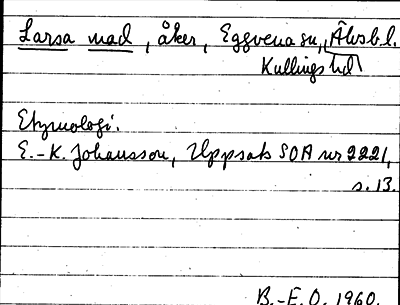 Larsa mad, åker, Eggvena sn, Älvsb. l.
Kullings hd
Etymologi.
E.-K. Johansson, Uppsats SOA nr 2221,
s. 13.
B.-E. O. 1960.